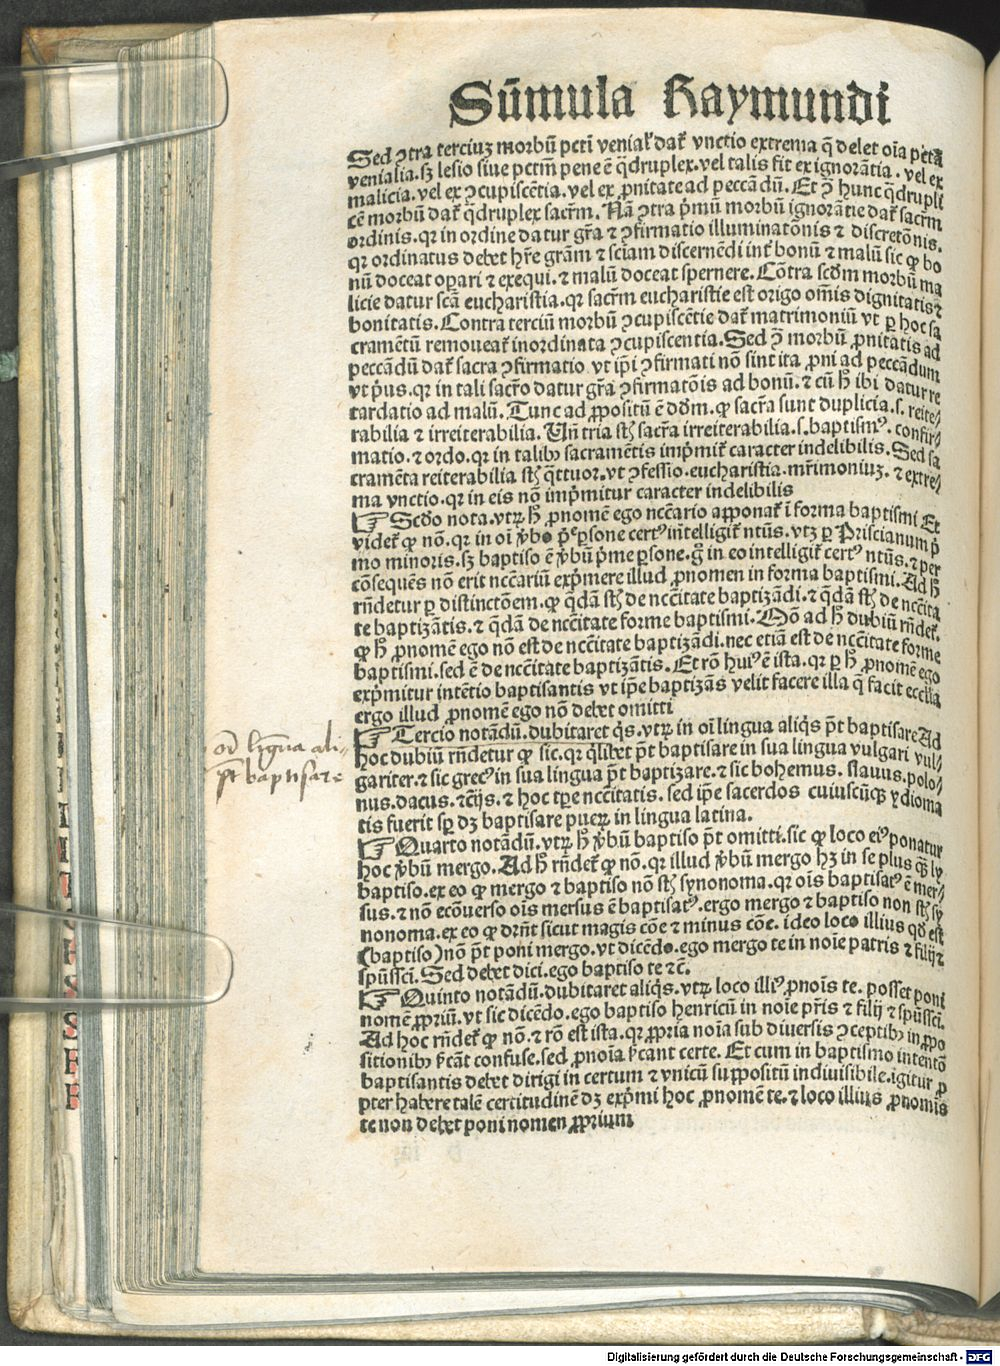 Sūmula Raymundi
Sed ꝯtra terciuꝫ morbū pctī venialꝭ dat᷑ vnctio extrema q̄ delet oīa pctā
venialia.sꝫ lesio siue pctm̄ pene ē q̄druplex.vel talis fit ex ignorātia. vel ex
malicia.vel ex ꝯcupiscētia.vel ex ꝓnitate ad peccādū. Et ꝯ̄ hunc q̄drupli
cē morbū dat᷑ q̄druplex sacrm̄. Nā ꝯtra pͥmū morbū ignorātie dat᷑ sacrm̄
ordinis.qꝛ in ordine datur gr̄a ⁊ ꝯfirmatio illuminatōnis ⁊ discretōnis.
qꝛ ordinatus debet hr̄e grām ⁊ sciam discernēdi int᷑ bonū ⁊ malū sic ꝙ bo
nū doceat oꝑari ⁊ exequi.⁊ malū doceat spernere. Cōtra scd̄m morbū ma
licie datur scā eucharistia.qꝛ sacrm̄ eucharistie est origo om̄is dignitatis ⁊
bonitatis. Contra terciū morbū ꝯcupiscētie dat᷑ matrimoniū vt ꝑ hoc sa
cramētū remoueat᷑ inordinata ꝯcupiscentia. Sed ꝯ̄ morbū ꝓnitatis ad
peccādū dat᷑ sacra ꝯfirmatio vt ip̄i ꝯfirmati nō sint ita ꝓni ad peccādum
vt pͥus.qꝛ in tali sacro datur gr̄a ꝯfirmatōis ad bonū.⁊ cū h̄ ibi datur re
tardatio ad malū. Tunc ad ꝓpositū ē dd̄m.ꝙ sacra sunt duplicia.s. reite⸗
rabilia ⁊ irreiterabilia. Vn̄ tria st̄ sacra irreiterabilia.s.baptismꝰ. confir⸗
matio.⁊ ordo.qꝛ in talibꝫ sacramētis impͥmit᷑ caracter indelibilis. Sed sa
cramēta reiterabilia st̄ q̄ttuor.vt ꝯfessio.eucharistia.mr̄imoniuꝫ.⁊ extre⸗
ma vnctio.qꝛ in eis nō impͥmitur caracter indelibilis
☞ Scd̄o nota.vtꝝ h̄ ꝓnomē ego nccārio apponat᷑ ī forma baptismi Et
videt᷑ ꝙ nō.qꝛ in oī ꝟbo pͥe ꝑsone certꝰ intelligit᷑ ntūs.vtꝫ ꝑ Priscianum pͥ
mo minoris.sꝫ baptiso ē ꝟbū pͥme ꝑsone.gͦ in eo intelligit᷑ certꝰ ntūs.⁊ per
cōsequēs nō erit nccāriū expͥmere illud ꝓnomen in forma baptismi. Ad h̄
rn̄detur ꝑ distinctōem.ꝙ q̄dā st̄ de nccītate baptizādi.⁊ q̄dā st̄ de nccīta
te baptizātis.⁊ q̄dā de nccītate forme baptismi. Mō ad h̄ dubiū rn̄det᷑.
ꝙ h̄ ꝓnomē ego nō est de nccītate baptizādi.nec etiā est de nccītate forme
baptismi.sed ē de nccītate baptizātis. Et rō huiꝰ ē ista.qꝛ ꝑ h̄ ꝓnomē ego
expͥmitur intētio baptisantis vt ip̄e baptizās velit facere illa q̄ facit eccl̄ia
ergo illud ꝓnomē ego nō debet omitti
☞ Tercio notādū.dubitaret qͥs.vtꝝ in oī lingua aliqͥs pt̄ baptisare Ad
hoc dubiū rn̄detur ꝙ sic.qꝛ qͥlibet pt̄ baptisare in sua lingua vulgari vul⸗
gariter.⁊ sic grecꝰ in sua lingua pt̄ baptizare.⁊ sic bohemus. slauus.polo⸗
nus.dacus.⁊ciѕ.⁊ hoc tꝑe nccītatis. sed ip̄e sacerdos cuiuscūqꝫ ydioma
tis fuerit sꝑ dꝫ baptisare pueꝝ in lingua latina.
☞ Quarto notādū.vtꝝ h̄ ꝟbū baptiso pt̄ omitti.sic ꝙ loco eiꝰ ponatur
hoc ꝟbū mergo. Ad h̄ rn̄det᷑ ꝙ nō.qꝛ illud ꝟbū mergo hꝫ in se plus qꝫ̄ ly
baptiso.ex eo ꝙ mergo ⁊ baptiso nō st̄ synonoma.qꝛ oīs baptisatꝰ ē mer⸗
sus.⁊ nō ecōuerso oīs mersus ē baptisatꝰ.ergo mergo ⁊ baptiso non st̄ sy
nonoma.ex eo ꝙ drn̄t sicut magis cōe ⁊ minus cōe. ideo loco illius qd̄ est
(baptiso) nō pt̄ poni mergo.vt dicēdo.ego mergo te in noīe patris ⁊ filij ⁊
spūssci. Sed debet dici.ego baptiso te ⁊c̄.
☞ Quinto notādū.dubitaret aliqͥs.vtꝝ loco illiꝰ ꝓnoīs te. posset poni
nomē ꝓpriū.vt sic dicēdo.ego baptiso henricū in noīe pr̄is ⁊ filij ⁊ spūssci.
Ad hoc rn̄det᷑ ꝙ nō.⁊ rō est ista.qꝛ ꝓpria noīa sub diuersis ꝯceptibꝫ in ꝓpo
sitionibꝫ sͥcāt confuse.sed ꝓnoīa sͥcant certe. Et cum in baptismo intentō
baptisantis debet dirigi in certum ⁊ vnicū suppositū indiuisibile.igitur ꝓ
pter habere talē certitudinē dꝫ expͥmi hoc ꝓnomē te.⁊ loco illius ꝓnomīs
te non debet poni nomen ꝓprium
lingua ali⸗
pt̄ baptisare
Digitalisierung gefördert durch die Deutsche Forschungsgemeinschaft - DFG